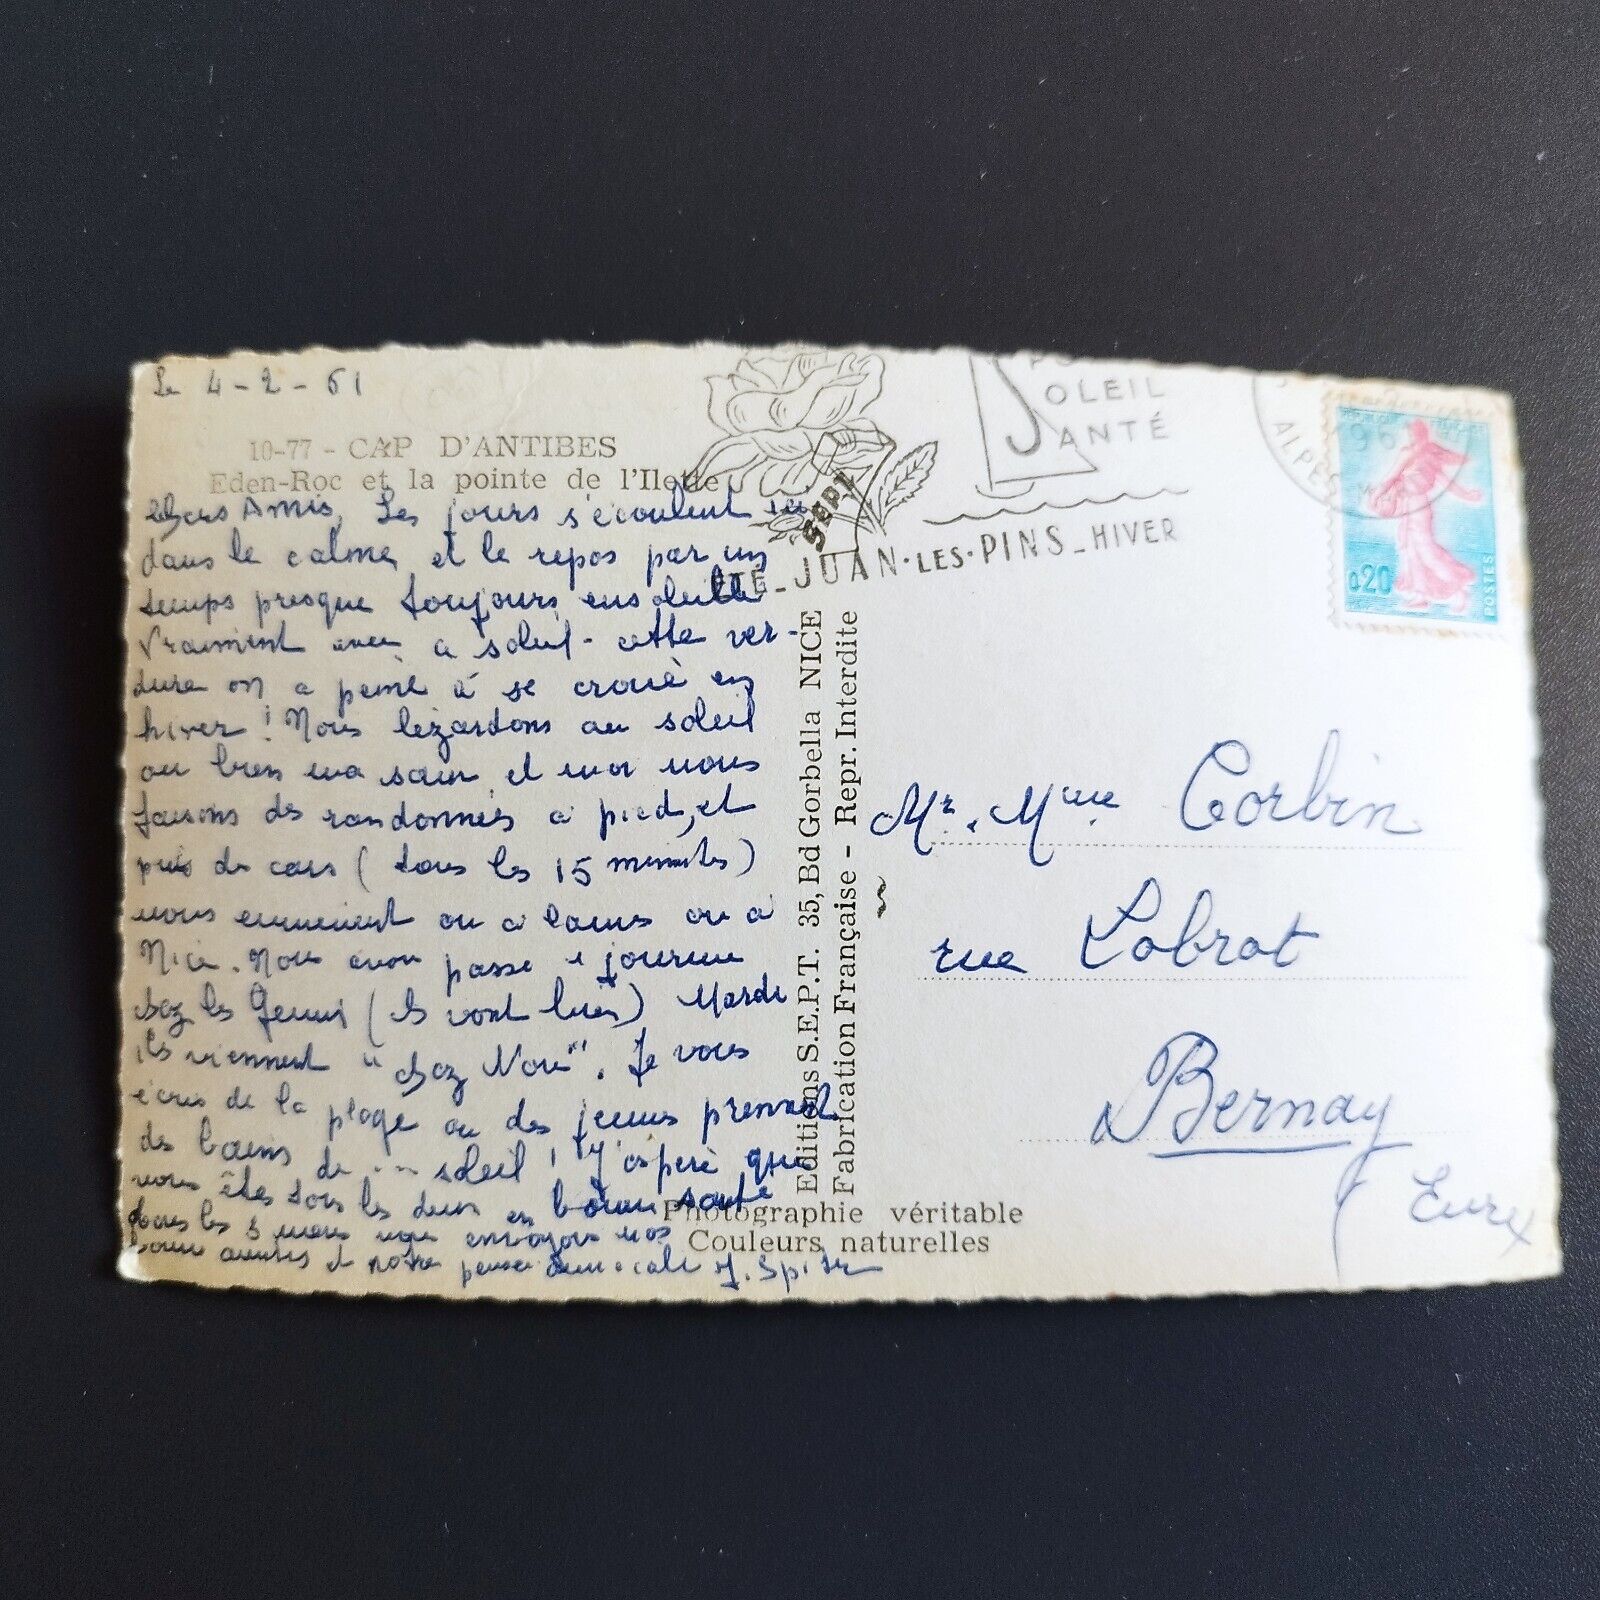 Le 4-2-61
10-77 - CAP D'ANTIBES
Eden-Roc et la pointe de l'Ilette
Chers Amis, Les jours s'écoulent ici
dans le calme et le repos par un
temps presque toujours ensoleillé
Vraiment avec ce soleil - cette ver-
dure on a peine à se croire en
hiver ! Nous lézardons au soleil
ou bien ma sœur et moi nous
faisons des randonnées à pied, et
puis des cars (tous les 15 minutes)
nous emmènent ou à Cannes ou à
Nice. Nous avons passé 1 journée
chez les (ils vont bien) Mardi
ils viennent "chez Nous". Je vous
écris de la plage où des jeunes prennent
des bains de ... soleil ! J'espère que
vous êtes tous les deux en bonne santé
Tous les 3 nous vous envoyons nos
bonnes amitiés et notre pensée amicale J.
SOLEIL
SANTÉ
SEPT
ÉTÉ - JUAN·LES·PINS - HIVER
ALPES
0,20
POSTES
Editions S.E.P.T. 35, Bd Gorbella NICE
Fabrication Française - Repr. Interdite
Photographie véritable
Couleurs naturelles
Mr. Mme Corbin
rue Lobrot
à Bernay
Eure